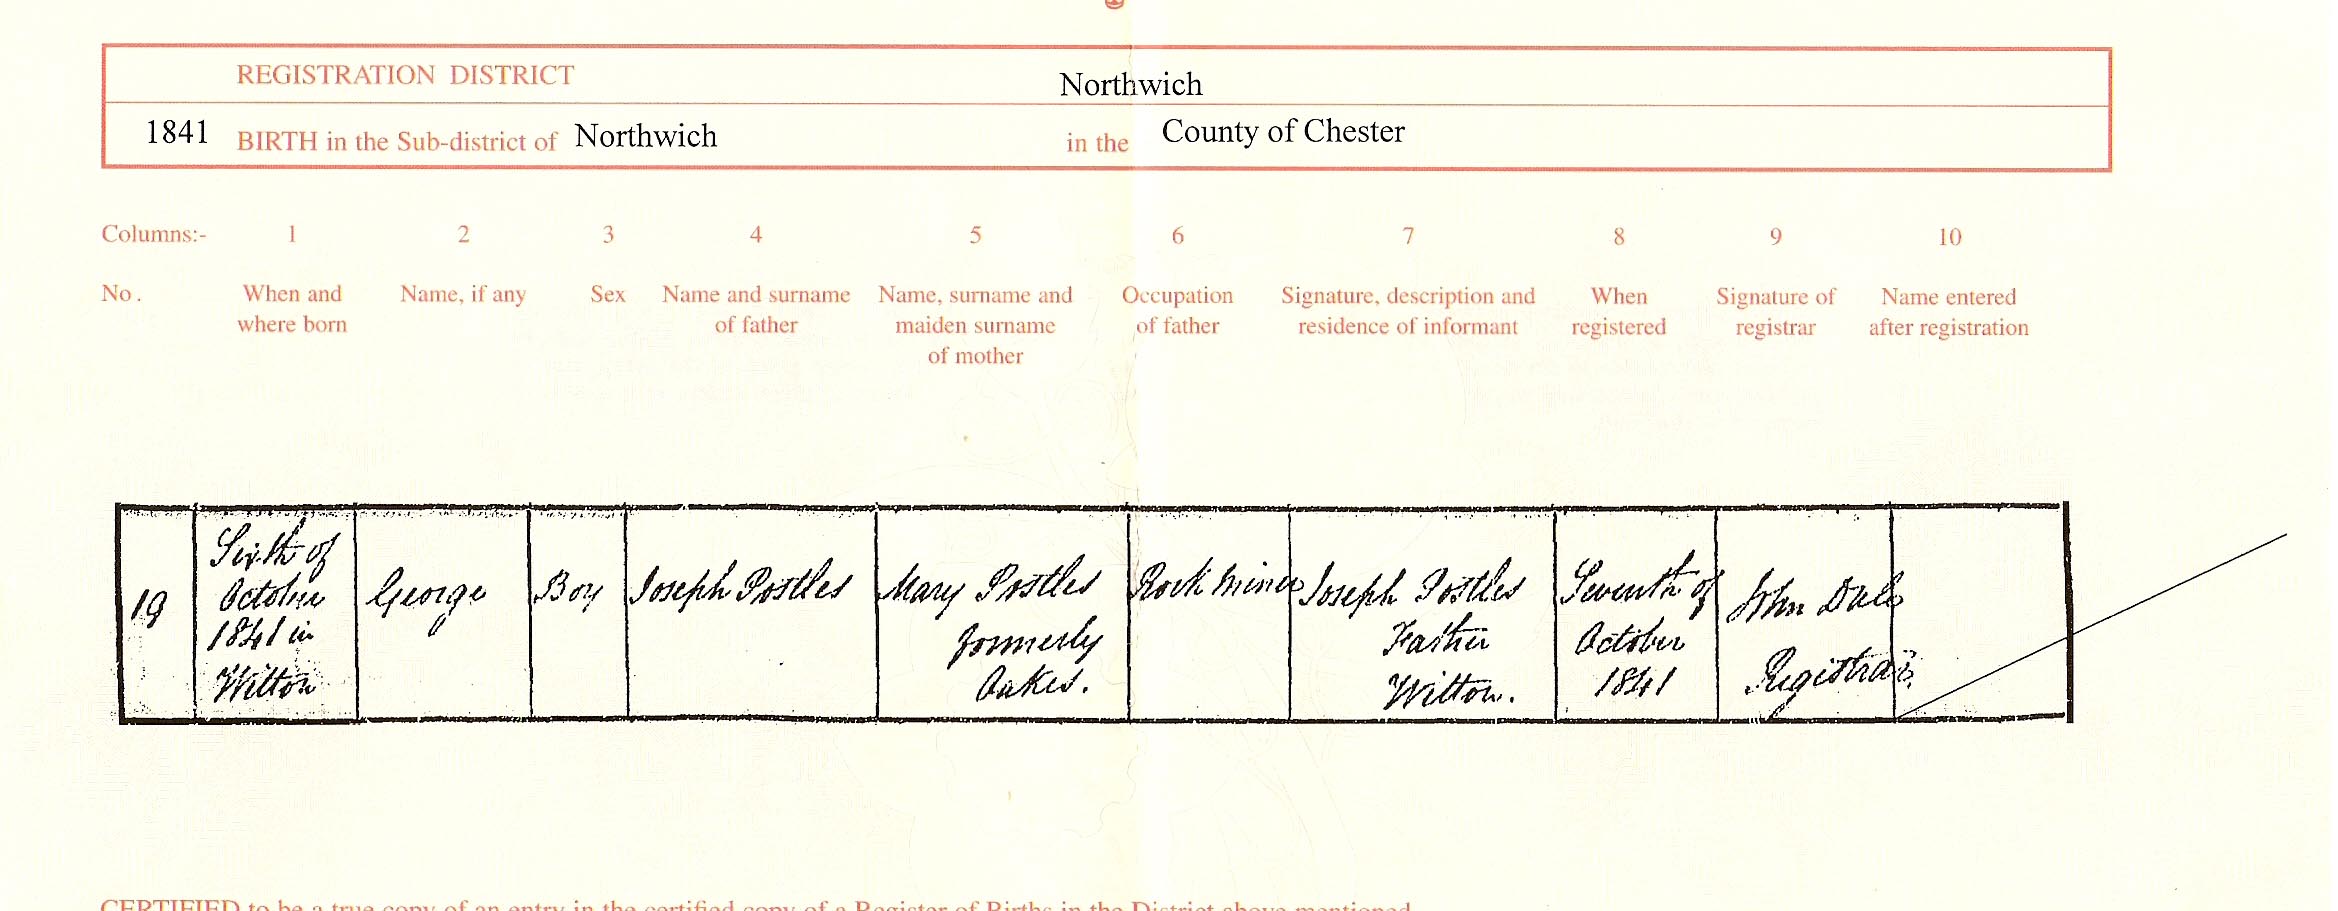 REGISTRATION DISTRICT Northwich
1841 BIRTH in the Sub-district of Northwich in the County of Chester
Columns:- 1 2 3 4 5 6 7 8 9 10
No. When and where born Name, if any Sex Name and surname of father Name, surname and maiden surname of mother Occupation of father Signature, description and residence of informant When registered Signature of registrar Name entered after registration
19
Sixth of
October
1841 in
Witton
George
Boy
Joseph Postles
Mary Postles
formerly
Oakes.
Rock miner
Joseph Postles
Father
Witton.
Seventh of
October
1841
John Dale
Registrar.
CERTIFIED to be a true copy of an entry in the certified copy of a Register of Births in the District above mentioned